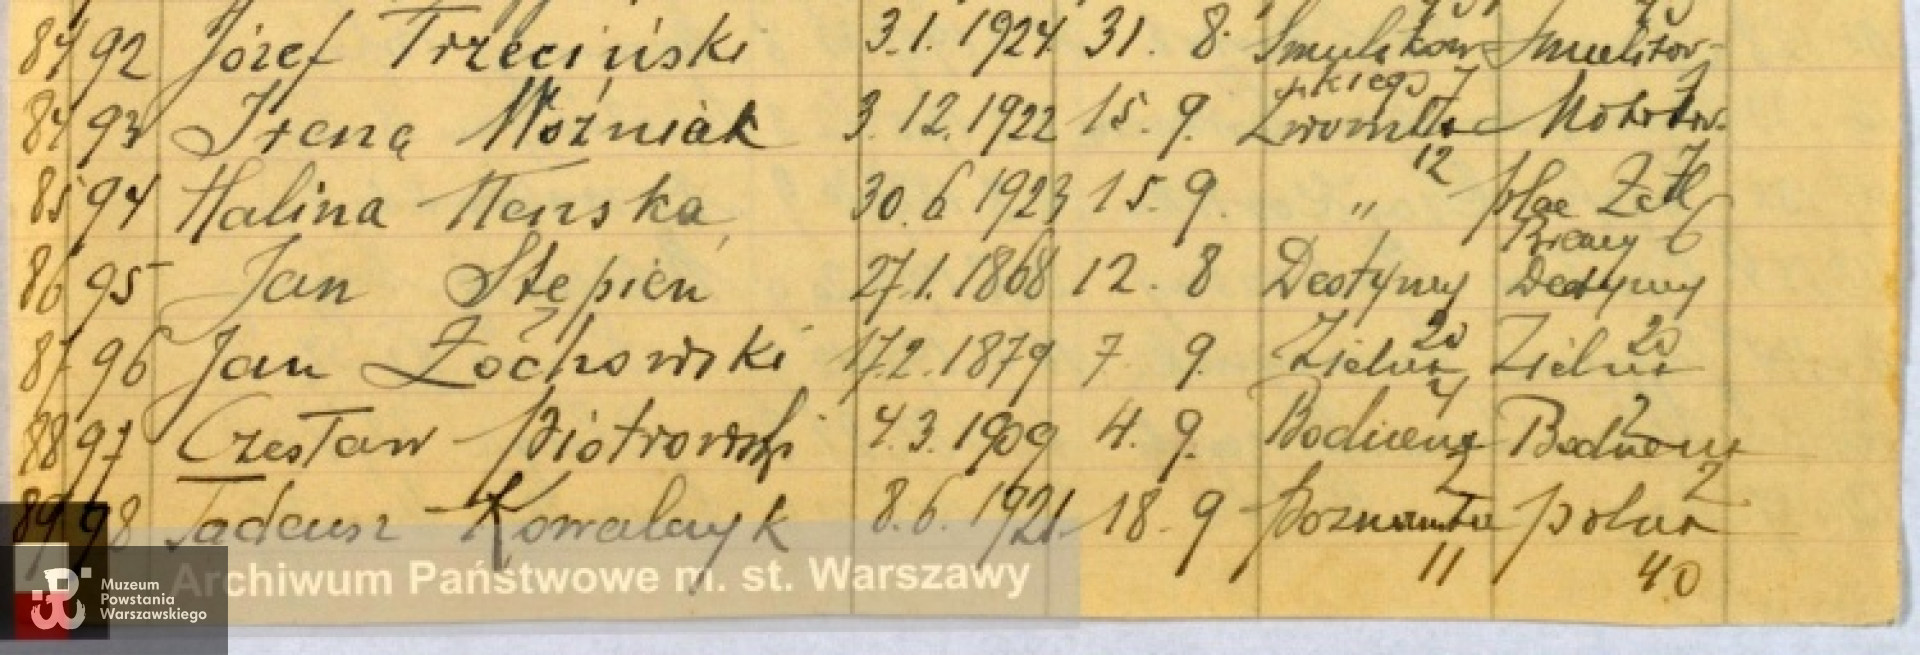 84 92 Józef Trzeciński 3.1.1924 31. 8.
kiego 7 7
84 93 Irena Woźniak 3.12.1922 15. 9.
12 7
85 94 Halina Wenska 30.6 1923 15. 9. " plac Żel
Bramy 6
86 95 Jan Stępień 27.1.1868 12. 8
20 20
87 96 Jan Żochowski 17.2.1879 7. 9. Zielna Zielna
88 97 Czesław Piotrowski 4.3.1909 4. 9.
2 2
89 98 Tadeusz Kowalczyk 8.6.1921. 18. 9 Polna
11 40
Archiwum Państwowe m. st. Warszawy
Muzeum
Powstania
Warszawskiego